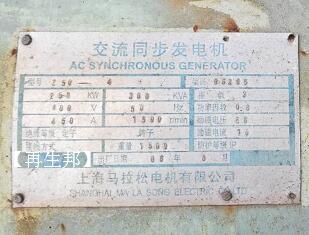 交流同步发电机
AC SYNCHRONOUS GENERATOR
型号 250 4
250 KW 300 KVA 相数 3
400 V 50 Hz 功率因数 0.8
450 A 1500 r/min 励磁电压
绝缘等级 定子 转子 励磁电流
接线方式 重量 1500 防护等级 IP
出厂日期 08
上海马拉松电机有限公司
SHANGHAI MA LA SONG ELECTRIC CO. LTD
再生邦